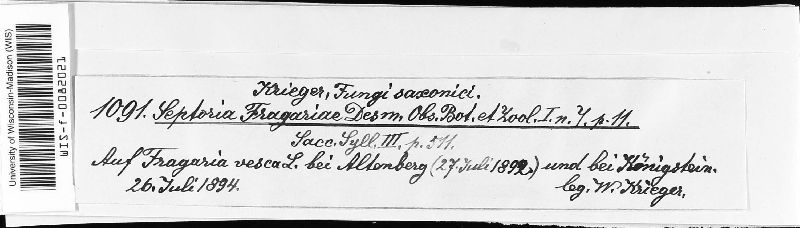 University of Wisconsin-Madison (WIS)
WIS-f-0082021
Krieger, Fungi saxonici.
1091. Septoria Fragariae Desm. Obs. Bot. et Zool. I. n. 7. p. 11.
Sacc. Syll. III. p. 511.
Auf Fragaria vesca L. bei Altenberg (27. Juli 1892.) und bei Königstein.
26. Juli 1894.
leg. W. Krieger.